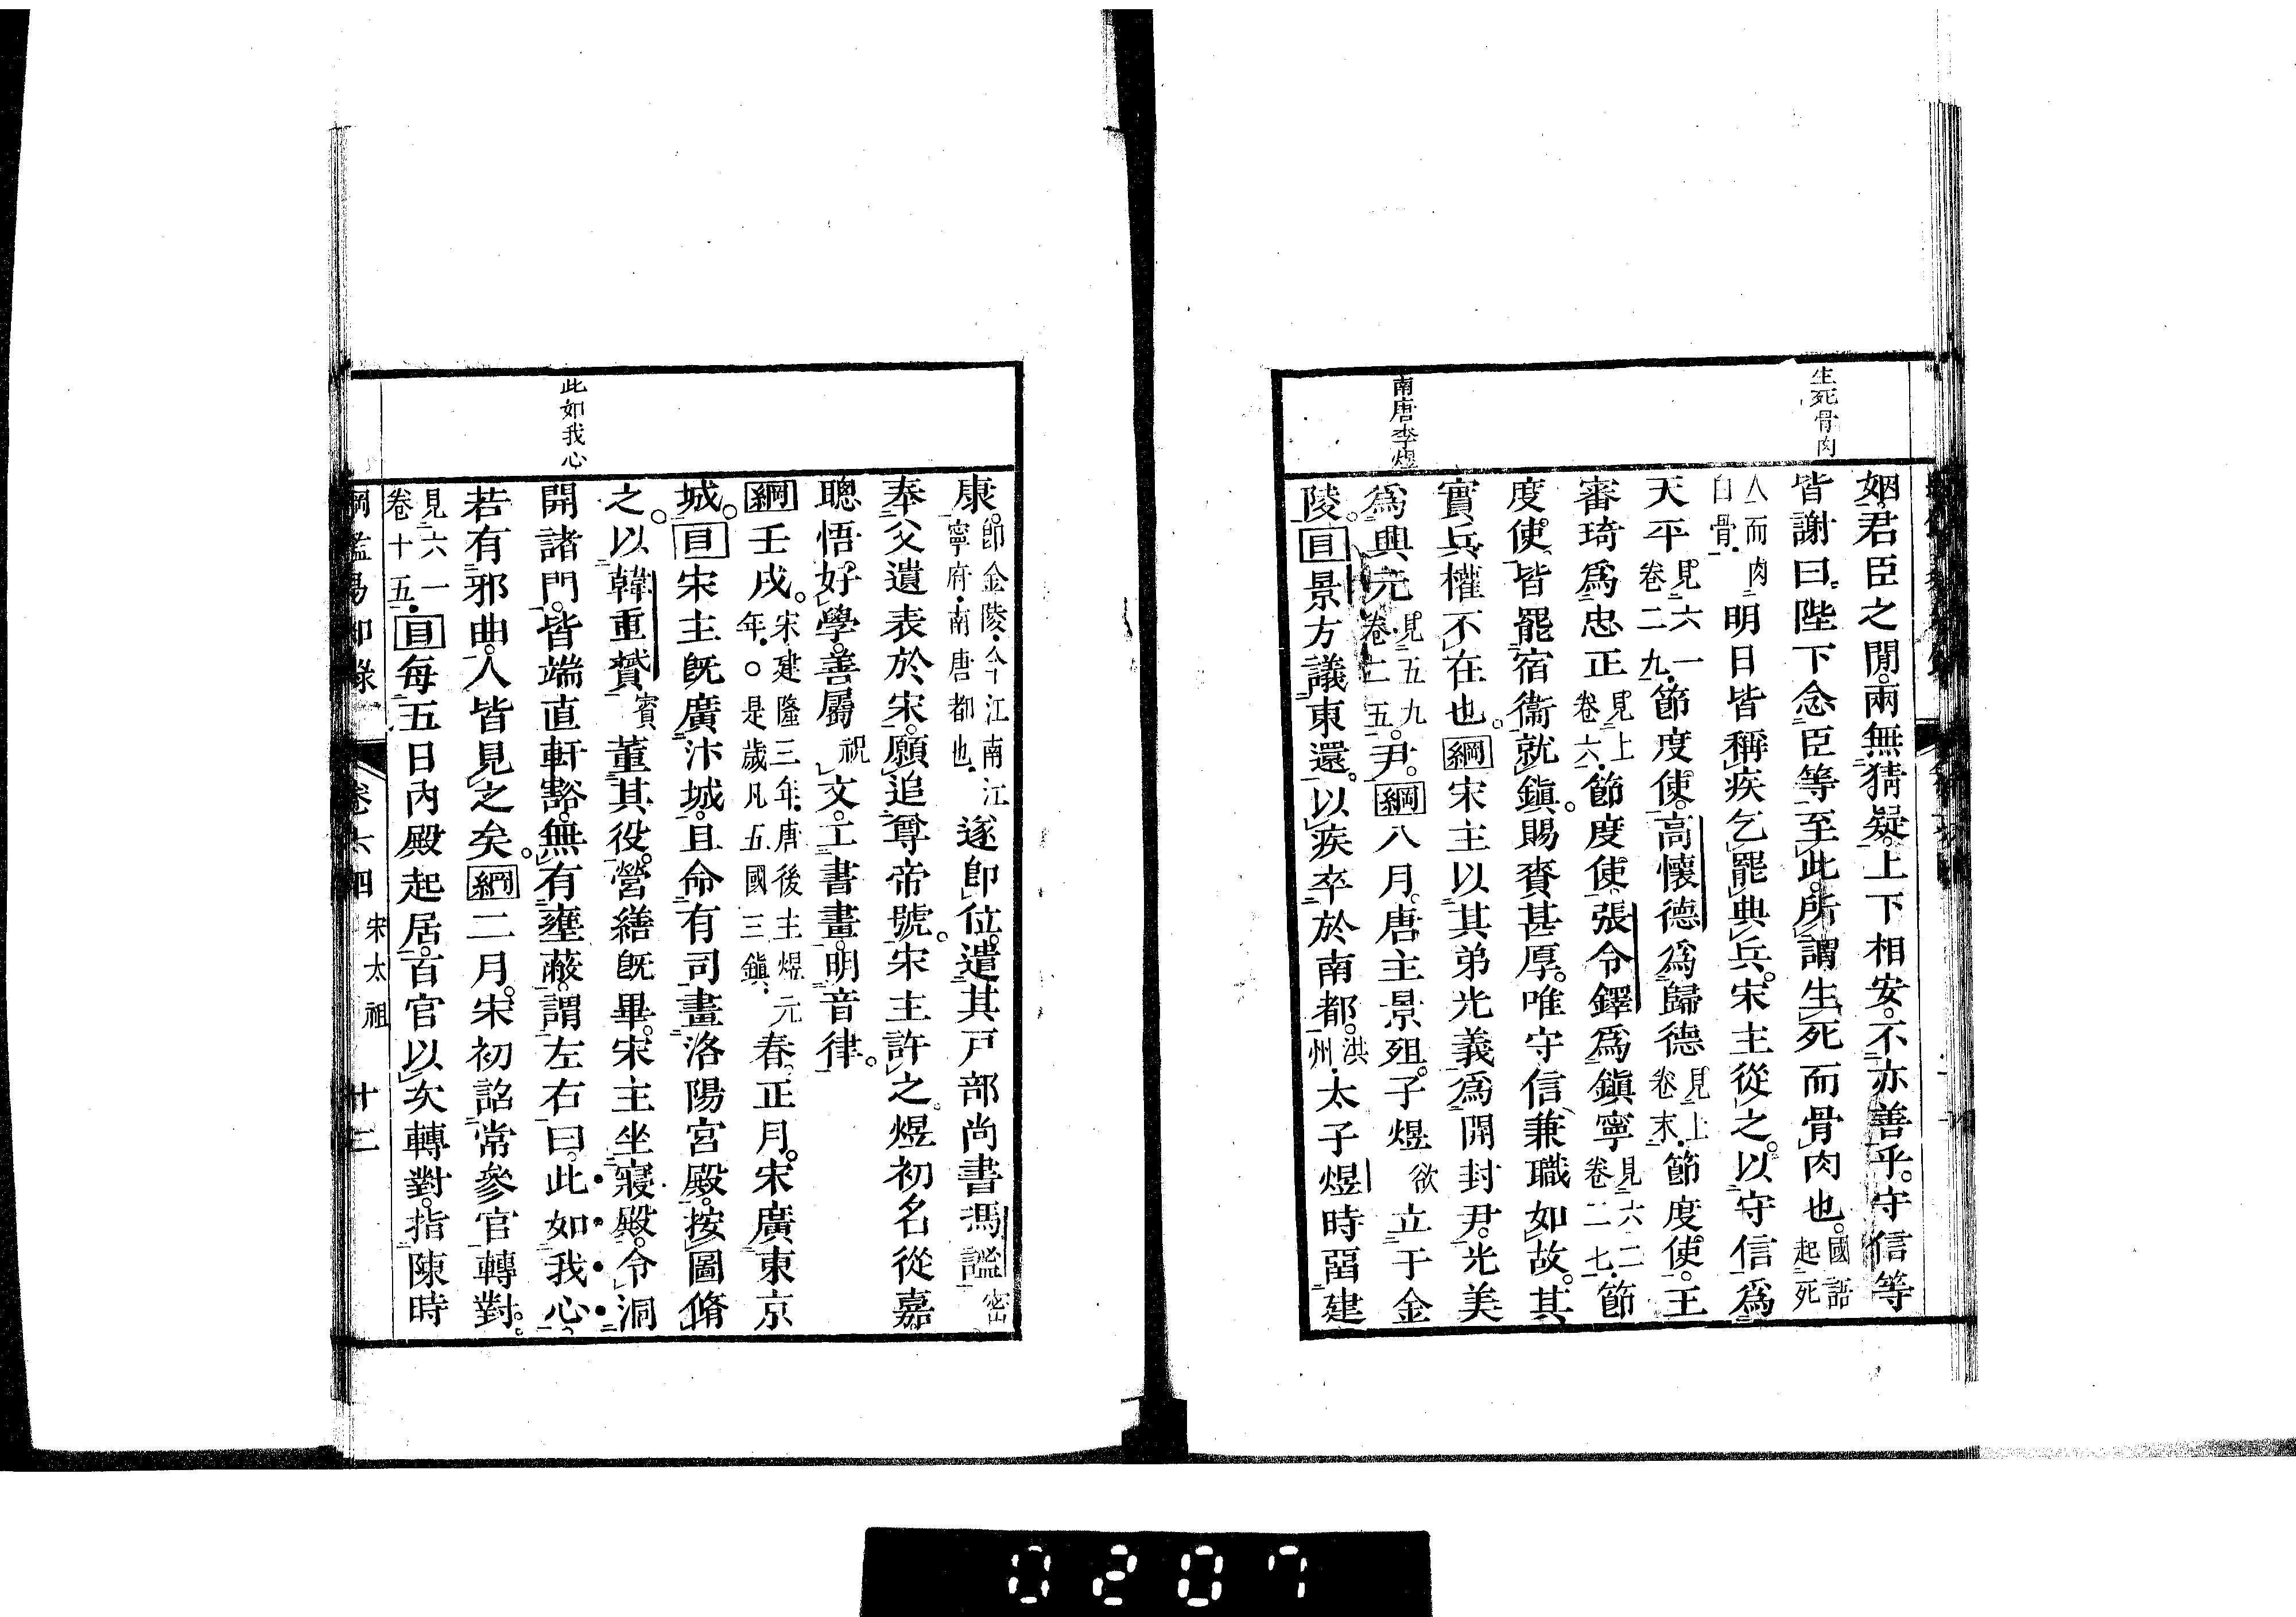 生死骨肉
南唐李煜
姻。君臣之閒。兩無猜疑。上下相安。不亦善乎。守信等
皆謝曰。陛下念臣等至此。所謂生死而骨肉也。國語起死
人而肉白骨。明日皆稱疾乞罷典兵。宋主從之。以守信爲
天平見六一卷二九。節度使。高懷德爲歸德見上卷末。節度使。王
審琦爲忠正見上卷六。節度使。張令鐸爲鎭寧見六二卷二七。節
度使。皆罷宿衞就鎭。賜賚甚厚。唯守信兼職如故。其
實兵權不在也。綱宋主以其弟光義爲開封尹。光美
爲興元見五九卷二五。尹。綱八月。唐主景殂。子煜欲立于金
陵。目景方議東還。以疾卒於南都。洪州。太子煜時留建
康。卽金陵。今江南江寧府。南唐都也。遂卽位。遣其戸部尚書馮謐密
奉父遺表於宋。願追尊帝號。宋主許之。煜初名從嘉
聰悟。好學。善屬祝文。工書畫。明音律。
綱壬戌。宋建隆三年。唐後主煜元年。○是歲凡五國三鎭。春。正月。宋廣東京
城。目宋主旣廣汴城。且命有司畫洛陽宮殿。按圖脩
之。以韓重贇賓董其役。營繕旣畢。宋主坐寢殿。令洞
開諸門。皆端直軒豁。無有壅蔽。謂左右曰。此如我心。
若有邪曲。人皆見之矣。綱二月。宋初詔常參官轉對。
見六一卷十五。目每五日內殿起居。百官以次轉對。指陳時
此如我心
綱鑑易知錄 卷六四 宋太祖 十二
0207